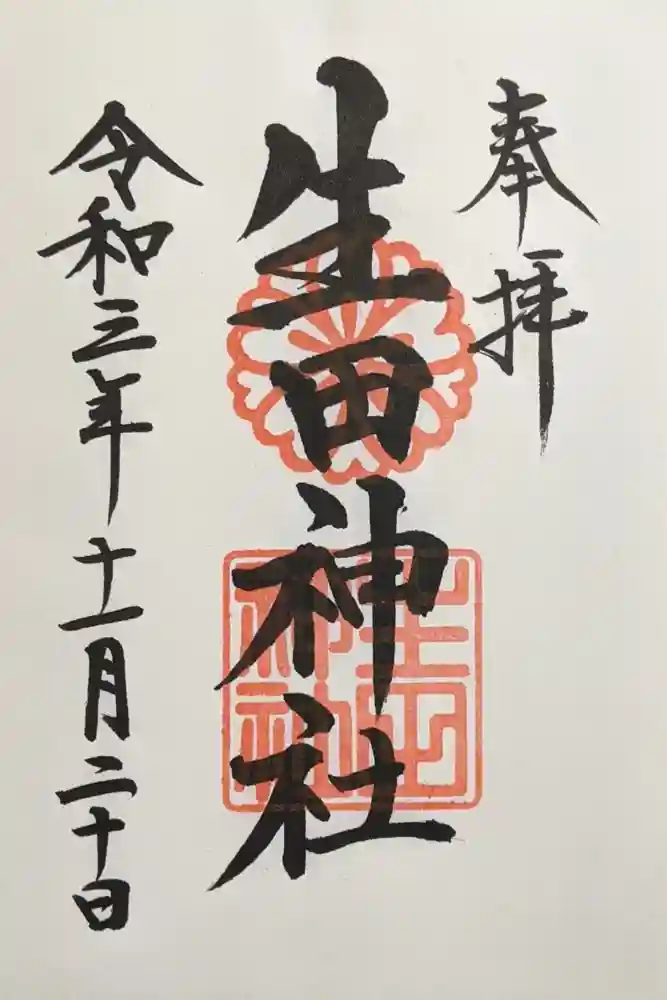 奉拝
生田神社
令和三年十一月二十日
生田神社